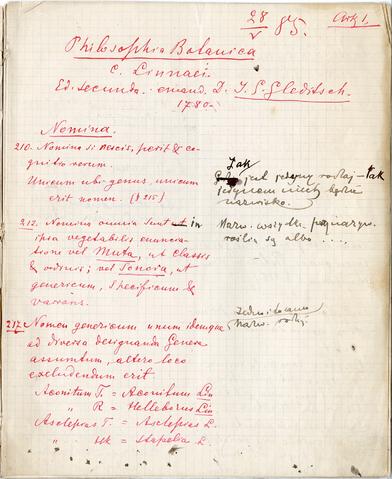 28/V 85. Ark 1.
Philosophia Botanica
C. Linnaei.
Ed. secunda. emand. D. J. G. Gleditsch.
1780.
Nomina.
210. Nomina si nescis, perit & co-
gnitio rerum.
Unicum ubi genus, unicum
erit nomen. (§ 215)
Tak
jest jedyny rodzaj – tak
jedynem niech będzie
nazwisko.
212. Nomina omnia sunt in
ipsa vegetabilis enuncia-
tione vel Muta, ut classis
& ordinis; vel Sonora, ut
genericum, specificum &
varians.
Nazw. wszystk.
roślin są albo ....
217. Nomen genericum unum idemque
ad diversa designanda Genera
assumtum, altero loco
excludendum erit.
Nazw. rodz.
Aconitum T. = Aconitum Lin
" R = Helleborus Lin
Asclepias T. = Asclepias L.
" = Stapelia L.